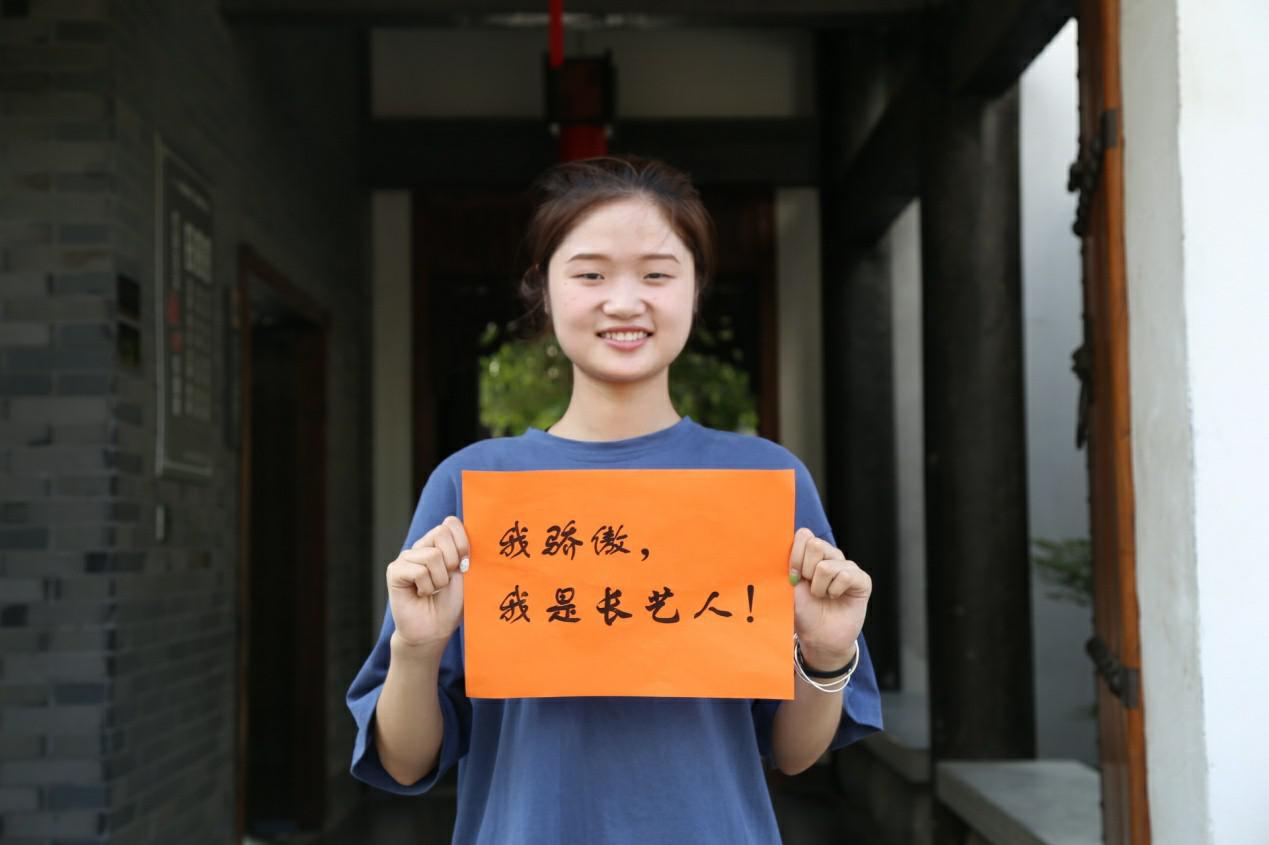 我骄傲，
我是长艺人！